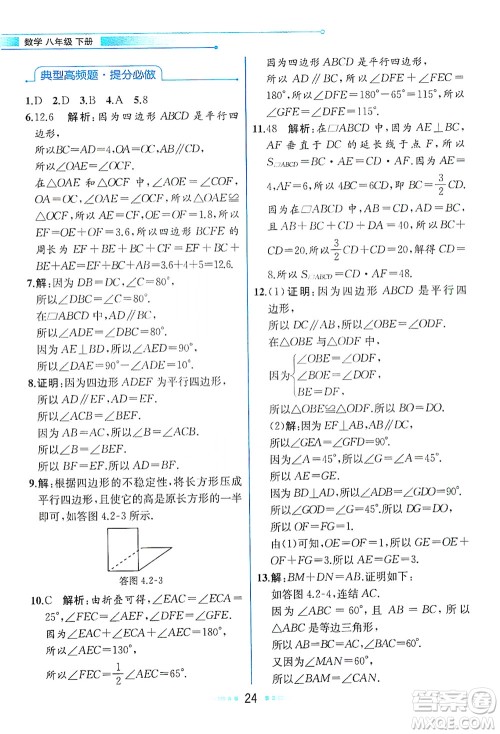 数学 八年级 下册
典型高频题·提分必做
1.D 2.D 3.B 4.A 5.8
6.12.6 解析:因为四边形 ABCD 是平行四
边形,
所以 AB∥CD,AD=BC=5,OA=OC,
所以∠OAE=∠OCF.
在△OAE 和△OCF 中,∠AOE=∠COF,
OA=OC,∠OAE=∠OCF,
所以△OAE≌△OCF,
所以 CF=AE,OE=OF=1.8,所以
EF=OE+OF=3.6,所以四边形 BCFE 的
周长为 EF+BE+BC+CF=EF+BC+
BE+AE=EF+BC+AB=3.6+5+4=12.6.
7.解:因为 DB=DC,∠C=80°,
所以∠DBC=∠C=80°.
在□ABCD 中,因为 AD∥BC,
所以∠ADB=∠DBC=80°.
因为 AE⊥BD,所以∠AED=90°,
所以∠DAE=90°-∠ADE=10°.
8.证明:因为四边形 ADEF 为平行四边形,
所以 AD∥EF,AD=EF,
所以∠ACB=∠FEB.
因为 AB=AC,所以∠ACB=∠B,
所以∠FEB=∠B,
所以 BF=EF.所以 AD=BF.
9.解:根据四边形的不稳定性,将长方形压成
平行四边形,且使它的高是原长方形的一半
即可,如答图 4.2-3 所示.
答图 4.2-3
10.C 解析:由折叠可得,∠EAC=∠ECA=
25°,∠FEC=∠AEF,∠DFE=∠GFE.
因为∠EAC+∠ECA+∠AEC=180°,
所以∠AEC=130°,
所以∠FEC=1/2∠AEC=65°.
因为四边形 ABCD 是平行四边形,
所以 DC∥AB,
所以∠DFE+∠FEB=180°,
所以∠DFE=180°-65°=115°,
所以∠GFE=∠DFE=115°.
11.48 解析:因为 AE⊥BC,
AF 垂直于 DC 的延长线于点 F,所以
S□ABCD=BC·AE=CD·AF.因为 AE=
4,AF=6,所以 4BC=6CD,所以 BC=3/2
CD.在□ABCD 中,AB=CD,AD=BC,
因为□ABCD 的周长为 40,所以 BC+
CD=20.所以3/2CD+CD=20,解得 CD=
8,所以 S□ABCD=CD·AF=48.
12.(1)证明:因为四边形 ABCD 是平行四
边形,
所以 OB=OD,AD∥BC,
所以∠OBE=∠ODF.
在△OBE 与△ODF 中,
因为{∠OBE=∠ODF,
OB=OD,
∠BOE=∠DOF,
所以△OBE≌△ODF,所以 OE=OF.
(2)解:因为 EF⊥AD,AD∥BC,
所以 EF⊥BC,
所以∠GEA=∠GFD=90°.
因为∠A=45°,
所以∠G=∠A=45°,所以 AE=GE.
因为 BD⊥AD,所以∠ADB=90°,
所以∠GDO=90°,
所以∠GOD=∠G=45°.
所以 OF=FG=1.
由(1)可知,OE=OF=1,
所以 AE=GE=OE+OF+FG=3.
13.解:BM+DN=AB.证明如下:
如答图 4.2-4,连接 AC.
因为 AB=BC,∠B=60°,
所以△ABC 是等边三角形,
所以 AC=BC.
又因为∠MAN=60°,
所以∠1+∠MAC=∠2+∠MAC,
所以∠1=∠2.
24